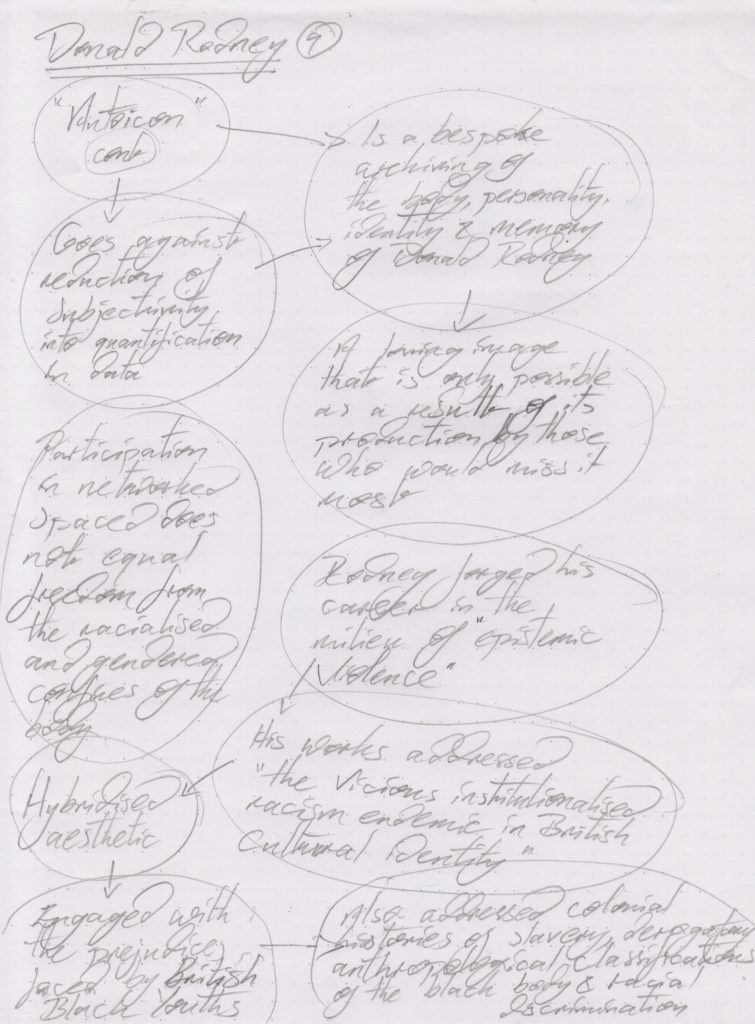 Donald Rodney 4
"Autoicon"
cont
Is a bespoke
archiving of
the body, personality,
identity & memory
of Donald Rodney
Goes against
reduction of
subjectivity
into quantification
in data
A loving image
that is only possible
as a result of its
production by those
who would miss it
most
Participation
in networked
spaced does
not equal
freedom from
the racialised
and gendered
confines of the
body
Rodney forged his
career in the
milieu of "epistemic
violence"
His works addressed
"the vicious institutionalised
racism endemic in British
cultural identity"
Hybridised
aesthetic
Engaged with
the prejudice
faced by British
Black Youths
Also addressed colonial
histories of slavery, derogatory
anthropological classifications
of the black body & racial
discrimination